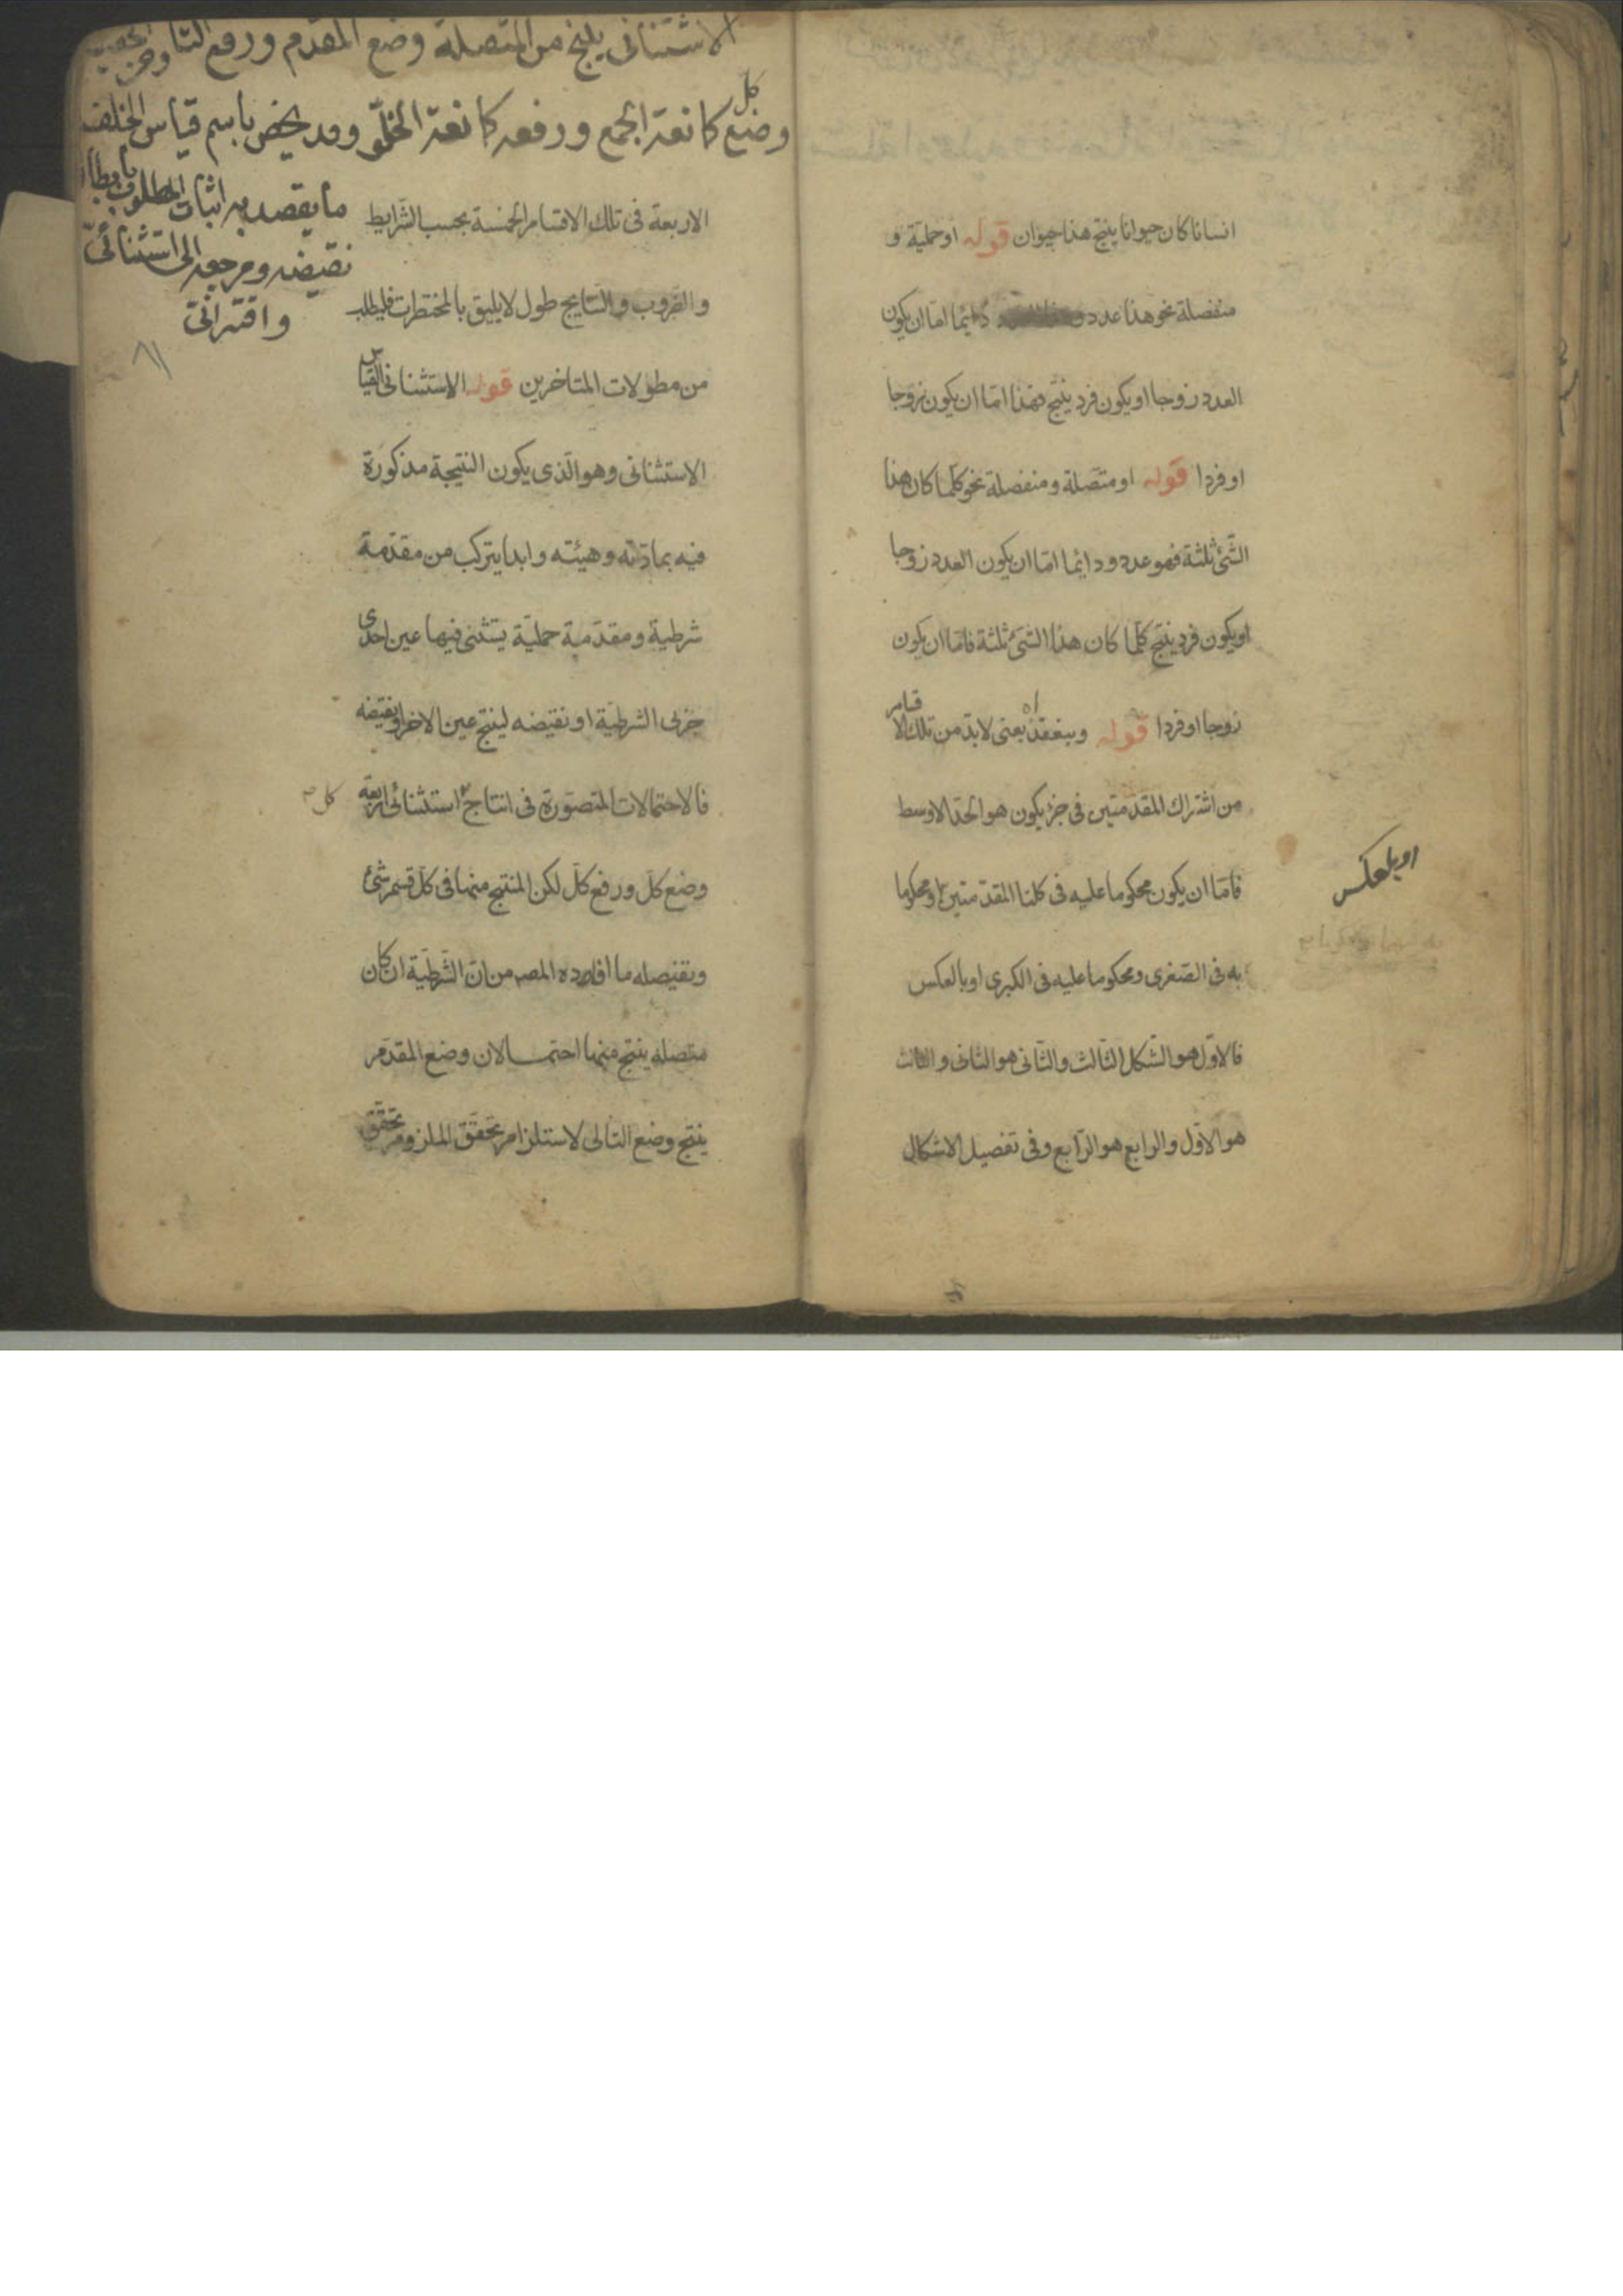 انسانا كان حيوانا ينتج هذا حيوان قوله او حملية و
منفصلة نحو هذا عدد و دائما اما ان يكون
العدد زوجا او يكون فرد ينتج فهذا اما ان يكون زوجا
او فردا قوله او متصلة ومنفصلة نحو كلما كان هذا
الشئ ثلثة فهو عدد ودائما اما ان يكون العدد زوجا
او يكون فرد ينتج كلما كان هذا الشئ ثلثة فاما ان يكون
زوجا او فردا قوله وينعقد اه يعنى لابد من تلك الاقسام
من اشتراك المقدمتين فى جزء يكون هو الحد الاوسط
فاما ان يكون محكوما عليه فى كلتا المقدمتين او محكوما
به فى الصغرى ومحكوما عليه فى الكبرى او بالعكس
فالاول هو الشكل الثالث والثانى هو الثانى والثالث
هو الاول والرابع هو الرابع وفى تفصيل الاشكال
او بالعكس
الاستثنائى ينتج من المتصلة وضع المقدم ورفع التا ومن الحقيقية
وضع كل كمانعة الجمع ورفعه كمانعة الخلو وقد يخص باسم قياس الخلف
ما يقصد به اثبات المطلوب بابطال
نقيضه ومرجعه الى استثنائى
واقترانى
٨١
الاربعة فى تلك الاقسام الخمسة بحسب الشرايط
والضروب والنتايج طول لا يليق بالمختصرات فليطلب
من مطولات المتاخرين قوله الاستثنائى القياس
الاستثنائى وهو الذى يكون النتيجة مذكورة
فيه بمادته وهيئته وابدا يتركب من مقدمة
شرطية ومقدمة حملية يستثنى فيها عين احدى
جزئى الشرطية او نقيضه لينتج عين الاخر او نقيضه
فالاحتمالات المتصورة فى انتاج استثنائى اربعة
كل
وضع كل ورفع كل لكن المنتج منها فى كل قسم شئ
وتفصيله ما افاده المصـ من ان الشرطية ان كان
متصلة ينتج منها احتمالان وضع المقدم
ينتج وضع التالى لاستلزام تحقق الملزوم تحقق